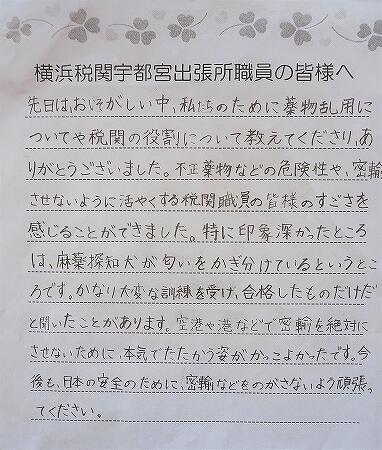 横浜税関宇都宮出張所職員の皆様へ
先日は、おいそがしい中、私たちのために薬物乱用に
ついてや税関の役割について教えてくださり、あ
りがとうございました。不正薬物などの危険性や、密輸
させないように活やくする税関職員の皆様のすごさを
感じることができました。特に印象深かったところ
は、麻薬探知犬が匂いをかぎ分けているというとこ
ろです。かなり大変な訓練を受け、合格したものだけだ
と聞いたことがあります。空港や港などで密輸を絶対に
させないために、本気でたたかう姿がかっこよかったです。今
後も、日本の安全のために、密輸などをのがさないよう頑張っ
てください。